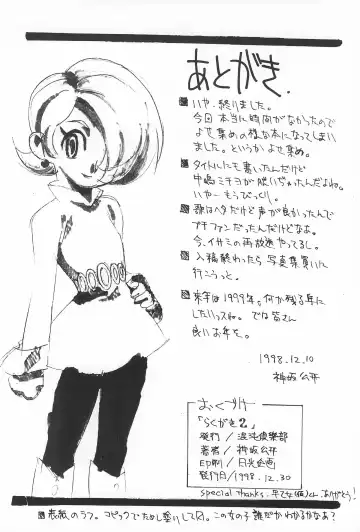 あとがき.
いやー終りました。
今回本当に時間がなかったので
よせ集めの様な本になってしまい
ました。というかよせ集め。
タイトルにも書いたんだけど
中嶋ミチヨが脱いじゃったんだよね。
いやーもうびっくり。
歌はヘタだけど声が良かったんで
プチファンだったんだけどなぁ。
今、イサミの再放送やってるし。
入稿終わったら写真集買いに
行こうっと。
来年は1999年。何か残る年に
したいっスね。では皆さん
良いお年を。
1998.12.10
神坂公平
おくづけ
「らくがき2」
発行/混沌倶楽部
著者/神坂公平
印刷/日光企画
発行日/1998.12.30
special thanks.
ありがとう!
表紙のラフ。コピックでためし塗りしてみた図。この女の子誰だかわかるかなぁ?